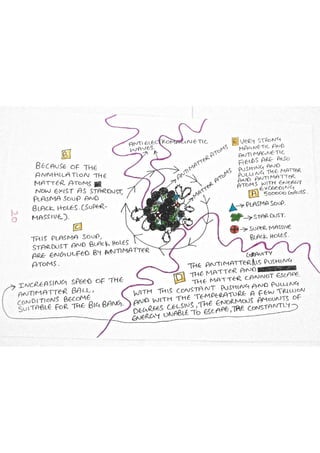 ANTI ELECTROMAGNETIC
WAVES
ANTIMATTER ATOMS
MATTER ATOMS
B
BECAUSE OF THE
ANNIHILATION THE
MATTER ATOMS
NOW EXIST AS STARDUST,
PLASMA SOUP AND
BLACK HOLES (SUPER-
MASSIVE).
C
THIS PLASMA SOUP,
STARDUST AND BLACK HOLES
ARE ENGULFED BY ANTIMATTER
ATOMS.
VERY STRONG
MAGNETIC AND
ANTIMAGNETIC
FIELDS ARE ALSO
PUSHING AND
PULLING THE MATTER
AND ANTIMATTER
ATOMS WITH ENERGY
EXCEEDING
A
PLASMA SOUP.
STAR DUST.
SUPER MASSIVE
BLACK HOLES.
GRAVITY
D
THE ANTIMATTER IS PUSHING
THE MATTER AND
THE MATTER CANNOT ESCAPE
WITH THIS CONSTANT PUSHING AND PULLING
AND WITH THE TEMPERATURE A FEW TRILLION
DEGREES CELSIUS, THE ENORMOUS AMOUNTS OF
ENERGY UNABLE TO ESCAPE, THE CONSTANTLY
INCREASING SPEED OF THE
ANTIMATTER BALL,
CONDITIONS BECOME
SUITABLE FOR THE BIG BANG.